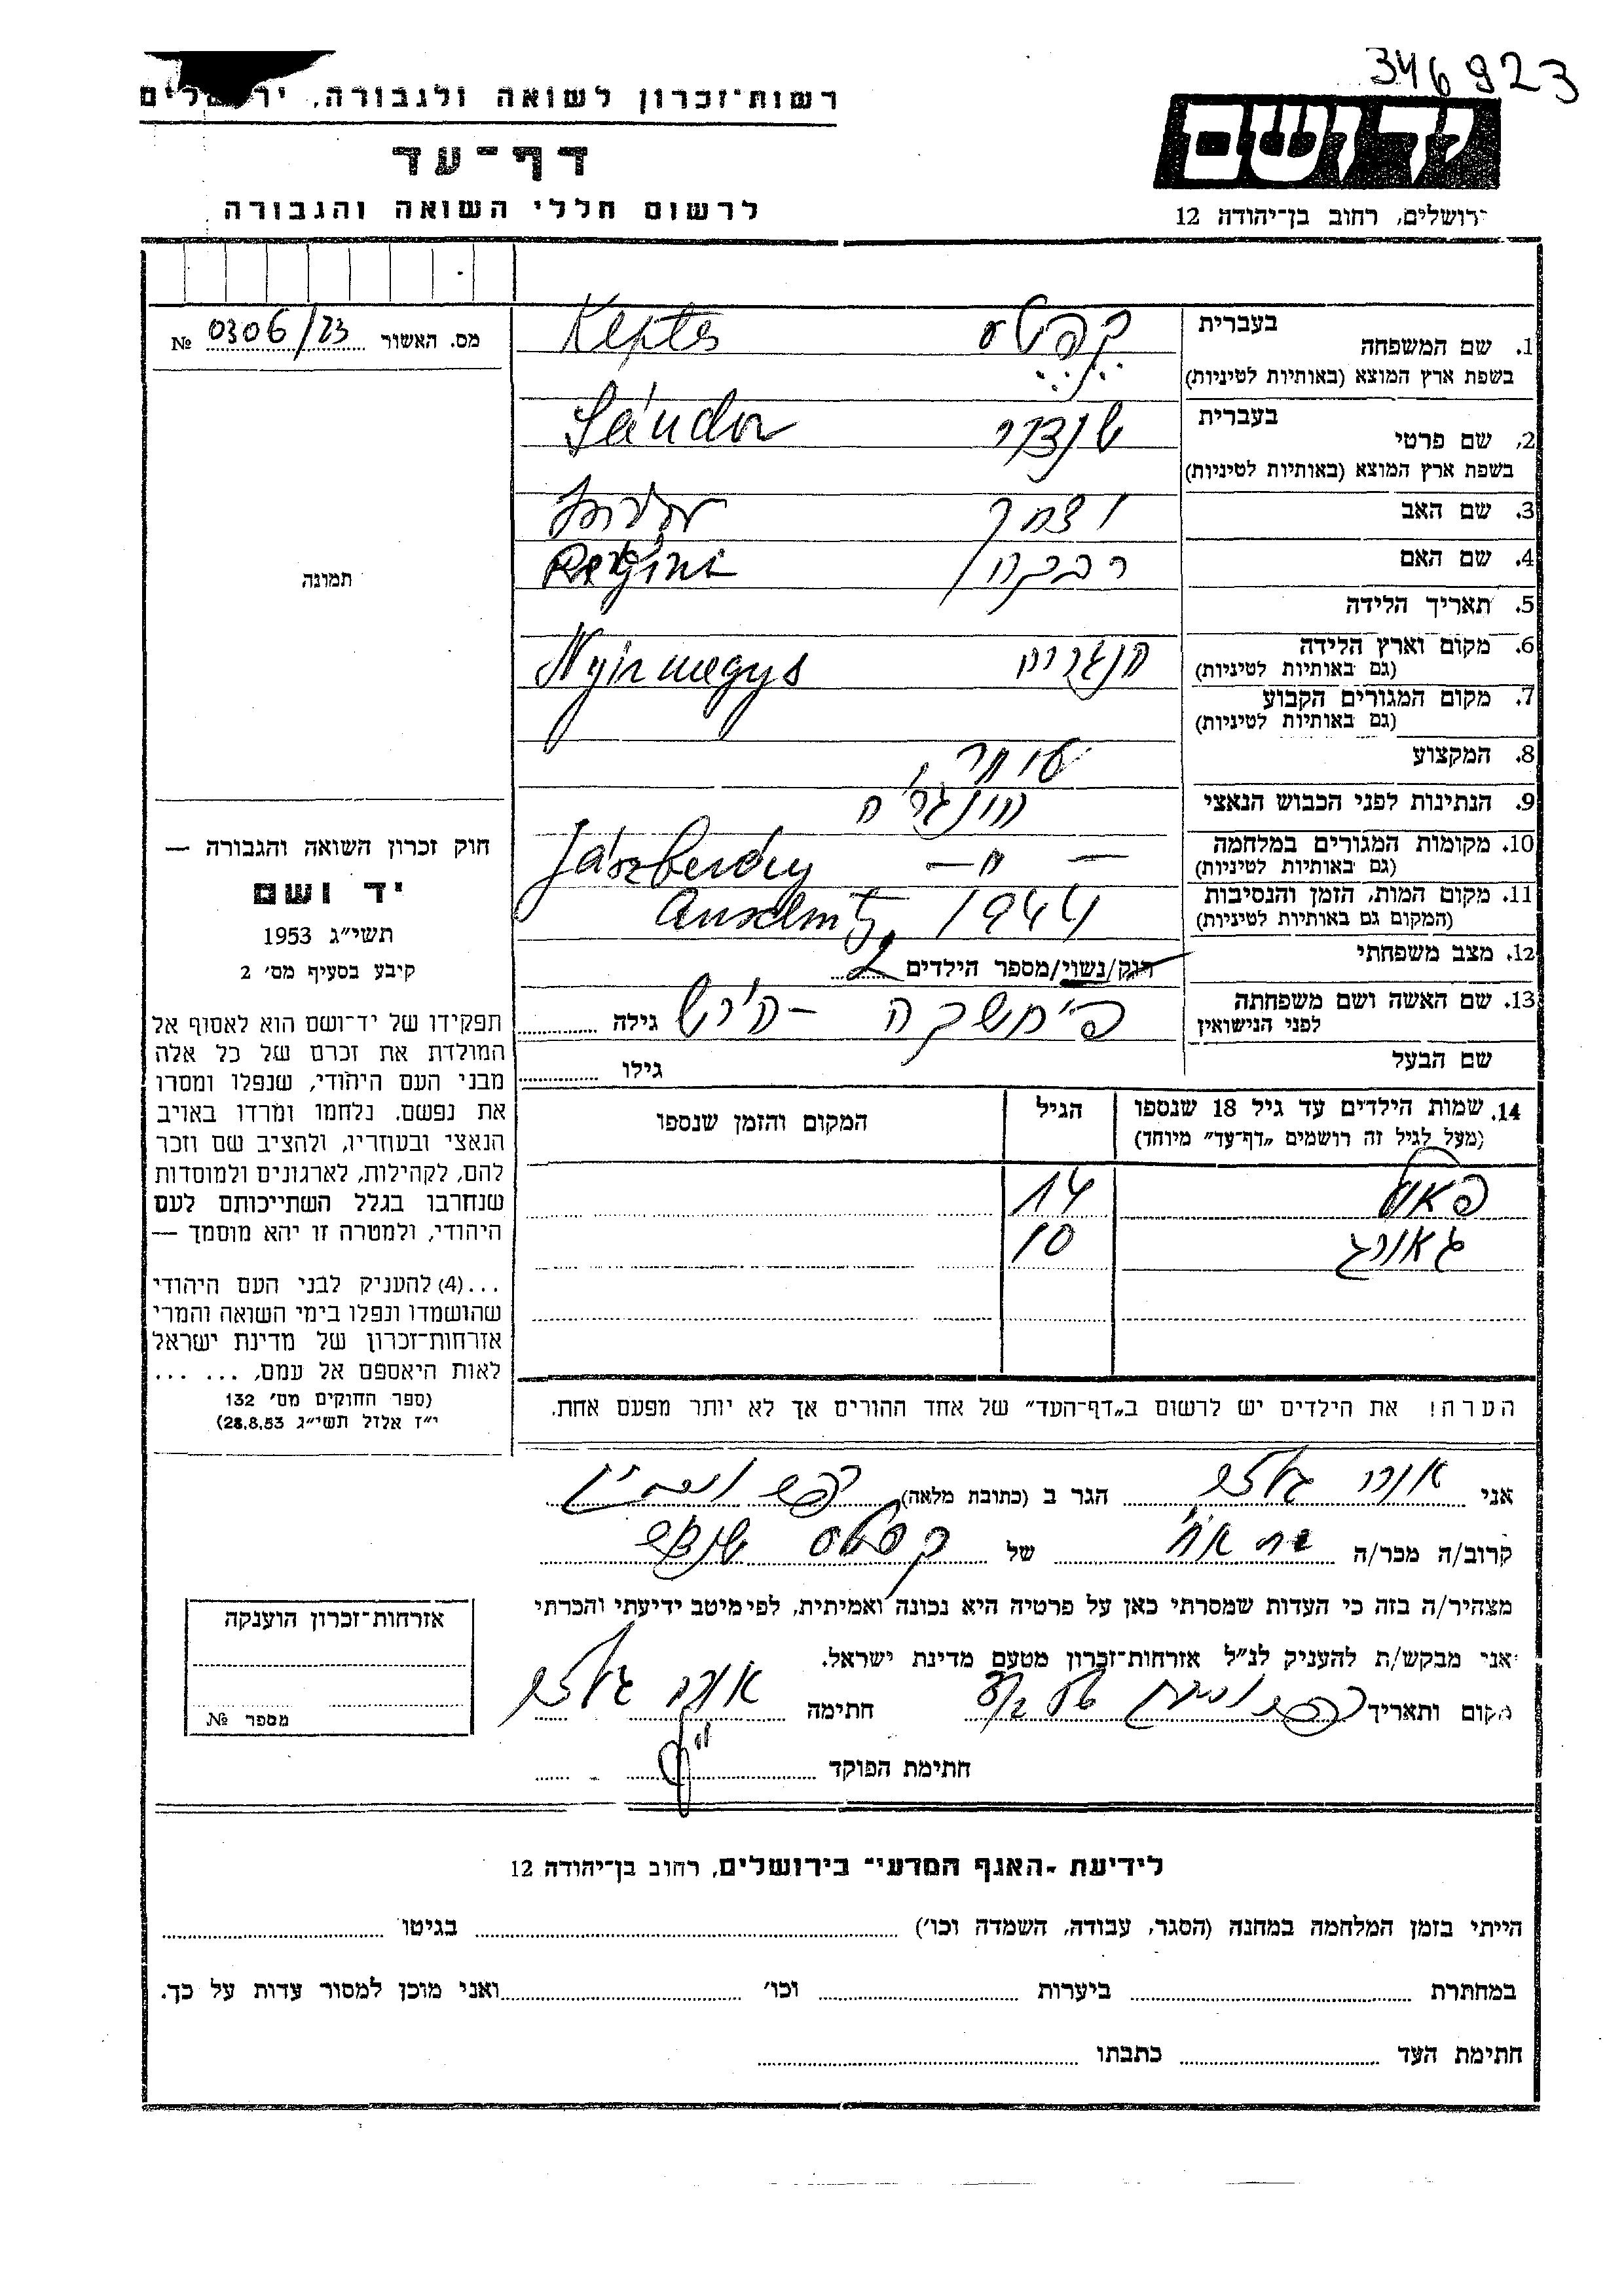 346923
רשות־זכרון לשואה ולגבורה, ירושלים
דף־עד
לרשום חללי השואה והגבורה
יד ושם
ירושלים, רחוב בן־יהודה 12
מס. האשור 0306/23 №
תמונה
חוק זכרון השואה והגבורה —
יד ושם
תשי״ג 1953
קיבע בסעיף מס׳ 2
תפקידו של יד־ושם הוא לאסוף אל
המולדת את זכרם של כל אלה
מבני העם היהודי, שנפלו ומסרו
את נפשם, נלחמו ומרדו באויב
הנאצי ובעוזריו, ולהציב שם וזכר
להם, לקהילות, לארגונים ולמוסדות
שנחרבו בגלל השתייכותם לעם
היהודי, ולמטרה זו יהא מוסמך —
...(4) להעניק לבני העם היהודי
שהושמדו ונפלו בימי השואה והמרי
אזרחות־זכרון של מדינת ישראל
לאות היאספם אל עמם. ... ...
(ספר החוקים מס׳ 132
י״ז אלול תשי״ג 28.8.53)
בעברית
1. שם המשפחה קפטס Keptes
בשפת ארץ המוצא (באותיות לטיניות)
בעברית
2. שם פרטי שנדור Sándor
בשפת ארץ המוצא (באותיות לטיניות)
3. שם האב יצחק
4. שם האם רבקה Regina
5. תאריך הלידה
6. מקום וארץ הלידה הונגריה Nyirmegys
(גם באותיות לטיניות)
7. מקום המגורים הקבוע
(גם באותיות לטיניות)
8. המקצוע סוחר
9. הנתינות לפני הכבוש הנאצי הונגריה
10. מקומות המגורים במלחמה — " — Jászberény
(גם באותיות לטיניות)
11. מקום המות, הזמן והנסיבות 1944
(המקום גם באותיות לטיניות)
12. מצב משפחתי רווק/נשוי/מספר הילדים 2
13. שם האשה ושם משפחתה פימשקה - הירש גילה
לפני הנישואין
שם הבעל גילו
14. שמות הילדים עד גיל 18 שנספו הגיל המקום והזמן שנספו
(מעל לגיל זה רושמים „דף־עד״ מיוחד)
פאול 14
גאורג 10
הערה! את הילדים יש לרשום ב„דף־העד״ של אחד ההורים אך לא יותר מפעם אחת.
אני הגר ב (כתובת מלאה)
קרוב/ה מכר/ה של קפטס
מצהיר/ה בזה כי העדות שמסרתי כאן על פרטיה היא נכונה ואמיתית, לפי מיטב ידיעתי והכרתי
אני מבקש/ת להעניק לנ״ל אזרחות־זכרון מטעם מדינת ישראל.
מקום ותאריך חתימה
חתימת הפוקד
אזרחות־זכרון הוענקה
מספר №
לידיעת ״האגף המדעי״ בירושלים, רחוב בן־יהודה 12
הייתי בזמן המלחמה במחנה (הסגר, עבודה, השמדה וכו׳) בגיטו
במחתרת ביערות וכו׳ ואני מוכן למסור עדות על כך.
חתימת העד כתבתו